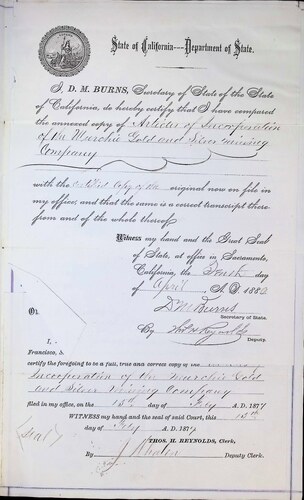 State of California — Department of State.
I, D. M. BURNS, Secretary of State of the State
of California, do hereby certify that I have compared
the annexed copy of Articles of Incorporation
of the Murchie Gold and Silver Mining
Company
with the Certified Copy of the original now on file in
my office, and that the same is a correct transcript there-
from and of the whole thereof.
Witness my hand and the Great Seal
of State, at office in Sacramento,
California, the Tenth day
of April A.D. 1882
D. M. Burns
Secretary of State.
By Thos. H. Reynolds
Deputy.
I
Francisco,
certify the foregoing to be a full, true and correct copy of the
Incorporation of the Murchie Gold
and Silver Mining Company
filed in my office, on the 15th day of July A.D. 187
WITNESS my hand and the seal of said Court, this 15th
day of July A.D. 187
THOS. H. REYNOLDS, Clerk,
(Seal)
By J. Whalen Deputy Clerk.